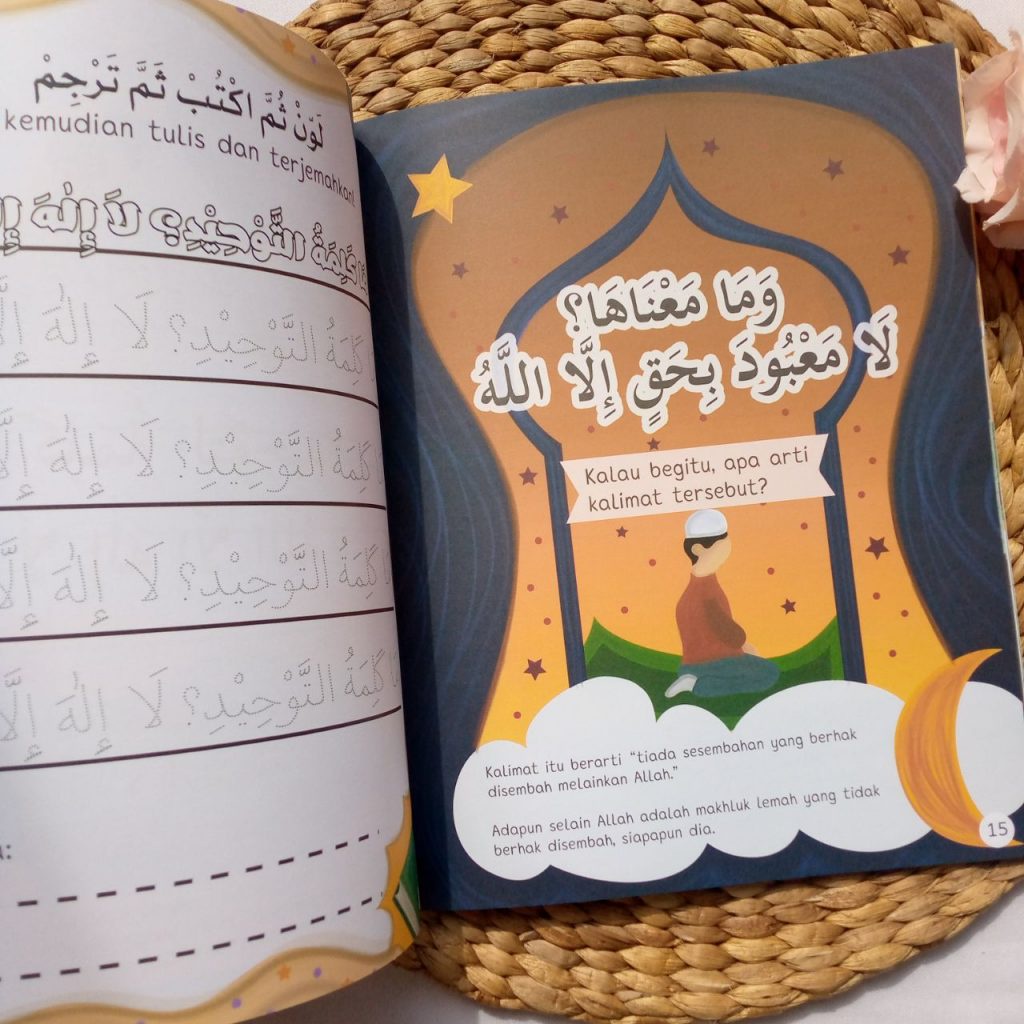 لَوِّنْ ثُمَّ اكْتُبْ ثَمَّ تَرْجِمْ
kemudian tulis dan terjemahkan!
كَلِمَةُ التَّوْحِيْدِ؟ لَا إِلٰهَ
كَلِمَةُ التَّوْحِيْدِ؟ لَا إِلٰهَ إِلَّا
كَلِمَةُ التَّوْحِيْدِ؟ لَا إِلٰهَ إِلَّا
كَلِمَةُ التَّوْحِيْدِ؟ لَا إِلٰهَ إِلَّا
كَلِمَةُ التَّوْحِيْدِ؟ لَا إِلٰهَ إِلَّا
وَمَا مَعْنَاهَا؟
لَا مَعْبُودَ بِحَقٍ إِلَّا اللَّهُ
Kalau begitu, apa arti
kalimat tersebut?
Kalimat itu berarti “tiada sesembahan yang berhak
disembah melainkan Allah.”
Adapun selain Allah adalah makhluk lemah yang tidak
berhak disembah, siapapun dia.
15